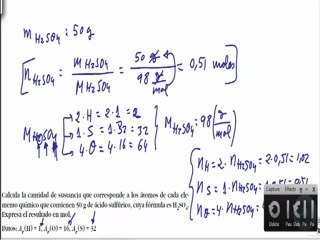 m H₂SO₄ : 50 g
[n H₂SO₄ = m H₂SO₄ / M H₂SO₄ = 50 g / 98 g/mol = 0,51 moles]
M H₂SO₄
2·H = 2·1 = 2
1·S = 1·32 = 32
4·O = 4·16 = 64
M H₂SO₄ = 98 (g/mol)
n H = 2· n H₂SO₄ = 2·0,51 = 1,02
n S = 1· n H₂SO₄
n O = 4· n H₂SO₄
Calcula la cantidad de sustancia que corresponde a los átomos de cada ele-
mento químico que contienen 50 g de ácido sulfúrico, cuya fórmula es H₂SO₄.
Expresa el resultado en mol.
Datos: Aᵣ(H) = 1, Aᵣ(O) = 16, Aᵣ(S) = 32
Capture Effects